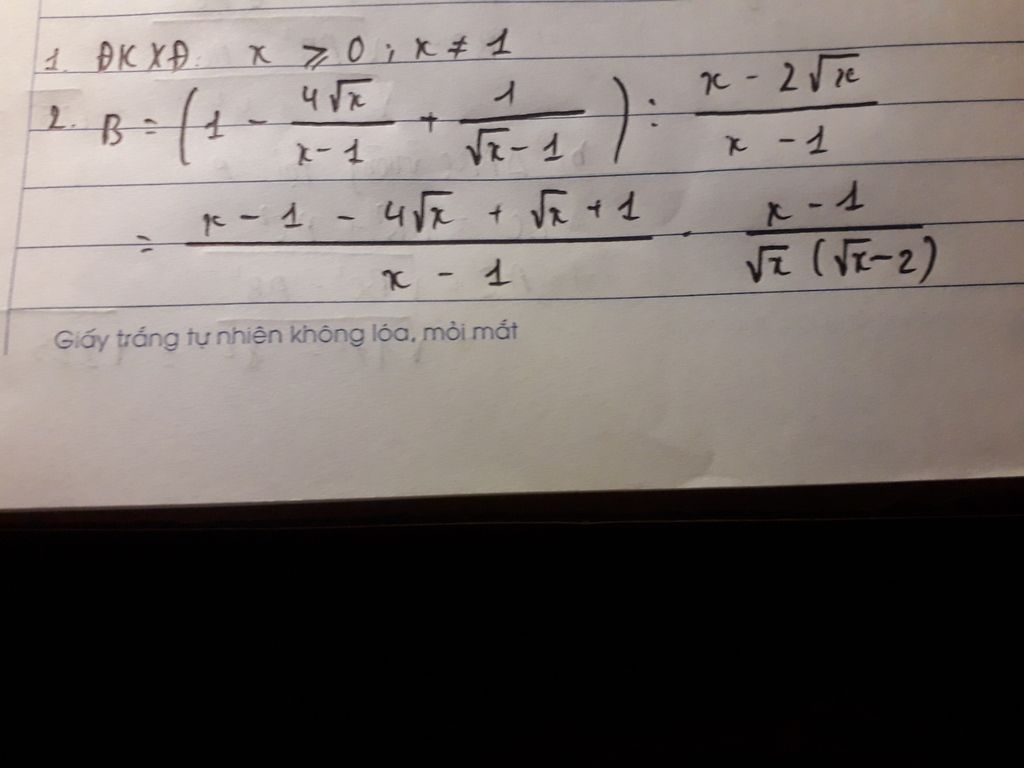 1. ĐKXĐ: x ⩾ 0 ; x ≠ 1
2. B = (1 - 4√x/(x-1) + 1/(√x-1)) : (x - 2√x)/(x - 1)
= (x - 1 - 4√x + √x + 1)/(x - 1) . (x - 1)/(√x (√x-2))
Giấy trắng tự nhiên không lóa, mỏi mắt